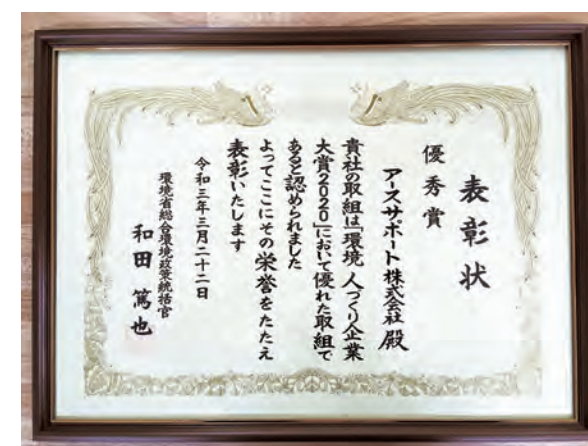 表彰状
優秀賞
アースサポート株式会社 殿
貴社の取組は「環境 人づくり企業
大賞2020」において優れた取組で
あると認められました
よってここにその栄誉をたたえ
表彰いたします
令和三年三月二十二日
環境省総合環境政策統括官
和田 篤也